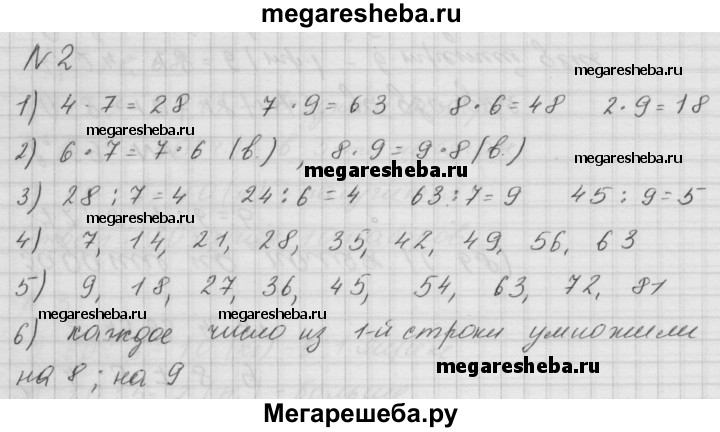 megaresheba.ru
N 2
megaresheba.ru
1) 4 · 7 = 28 7 · 9 = 63 8 · 6 = 48 2 · 9 = 18
megaresheba.ru
2) 6 · 7 = 7 · 6 (в.) , 8 · 9 = 9 · 8 (в.)
megaresheba.ru
3) 28 : 7 = 4 24 : 6 = 4 63 : 7 = 9 45 : 9 = 5
megaresheba.ru
4) 7, 14, 21, 28, 35, 42, 49, 56, 63
5) 9, 18, 27, 36, 45, 54, 63, 72, 81
megaresheba.ru megaresheba.ru
6) каждое число из 1-й строки умножили
на 8 ; на 9
megaresheba.ru
Мегарешеба.ру